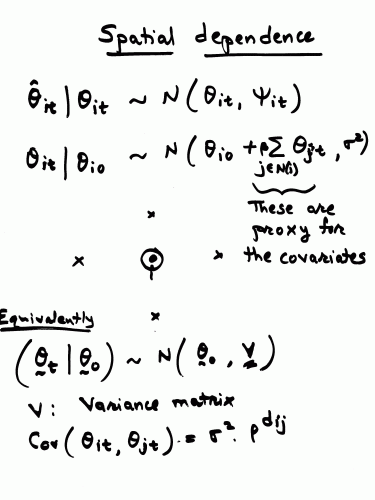 Spatial dependence
θ̂it | θit ~ N(θit, Ψit)
θit | θio ~ N(θio + ρ∑ θjt, σ²)
j∈N(i)
These are
proxy for
the covariates
Equivalently
(θt | θo) ~ N(θo, V)
V: Variance matrix
Cov(θit, θjt) = σ². ρ^dij